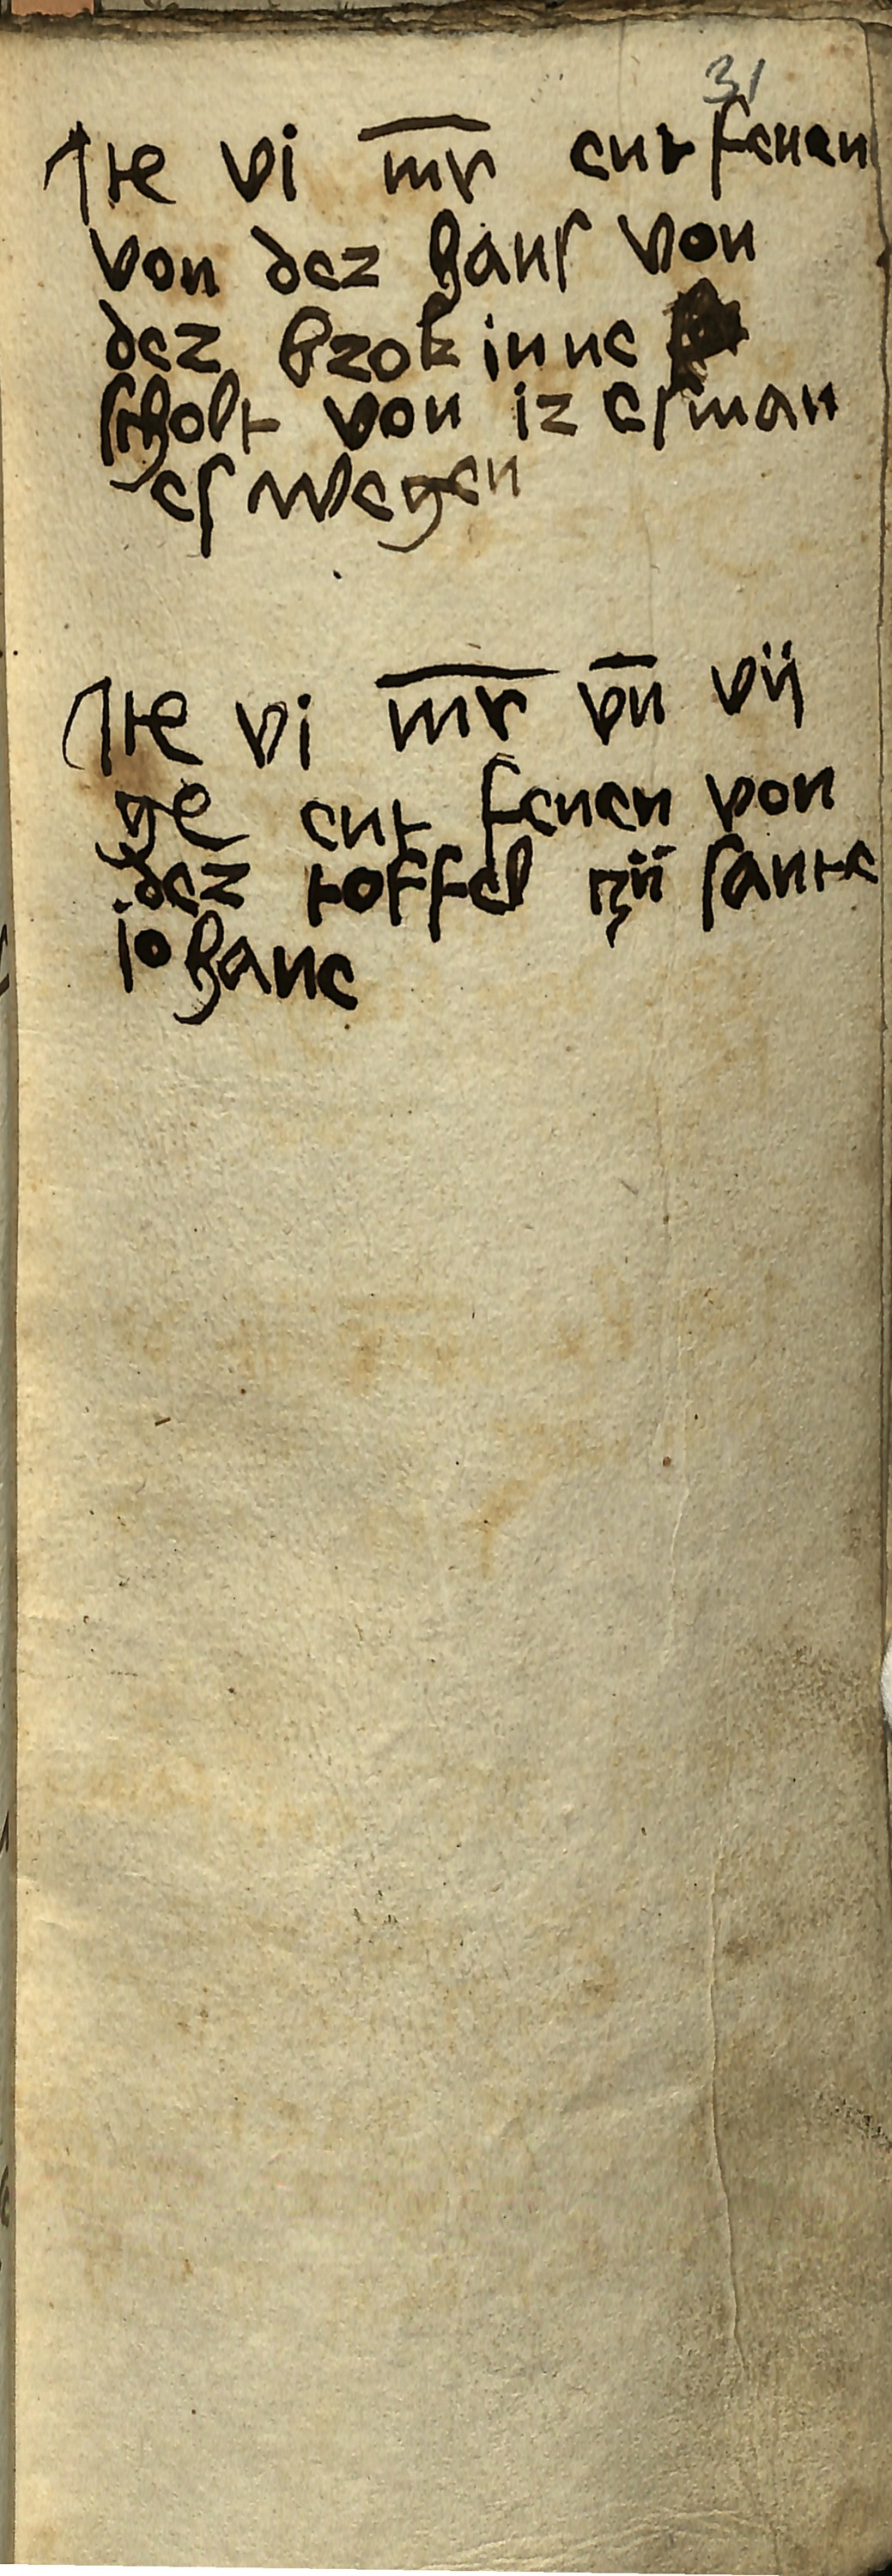 31
Ite vi mr entfenen
von dez hans von
dez brok inne
scholt von iz esman
es wegen
Ite vi mr vn vij
ge ent fenen von
dez toffel zü sante
johane